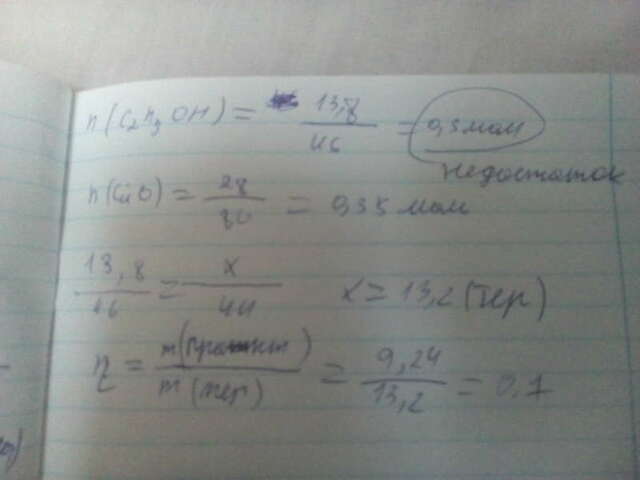 n(C₂H₅OH) = 13,8/46 = 0,3 мол
недостаток
n(CuO) = 28/80 = 0,35 мол
13,8/46 = x/44 x = 13,2 (тер)
η = m(практ)/m(тер) = 9,24/13,2 = 0,7